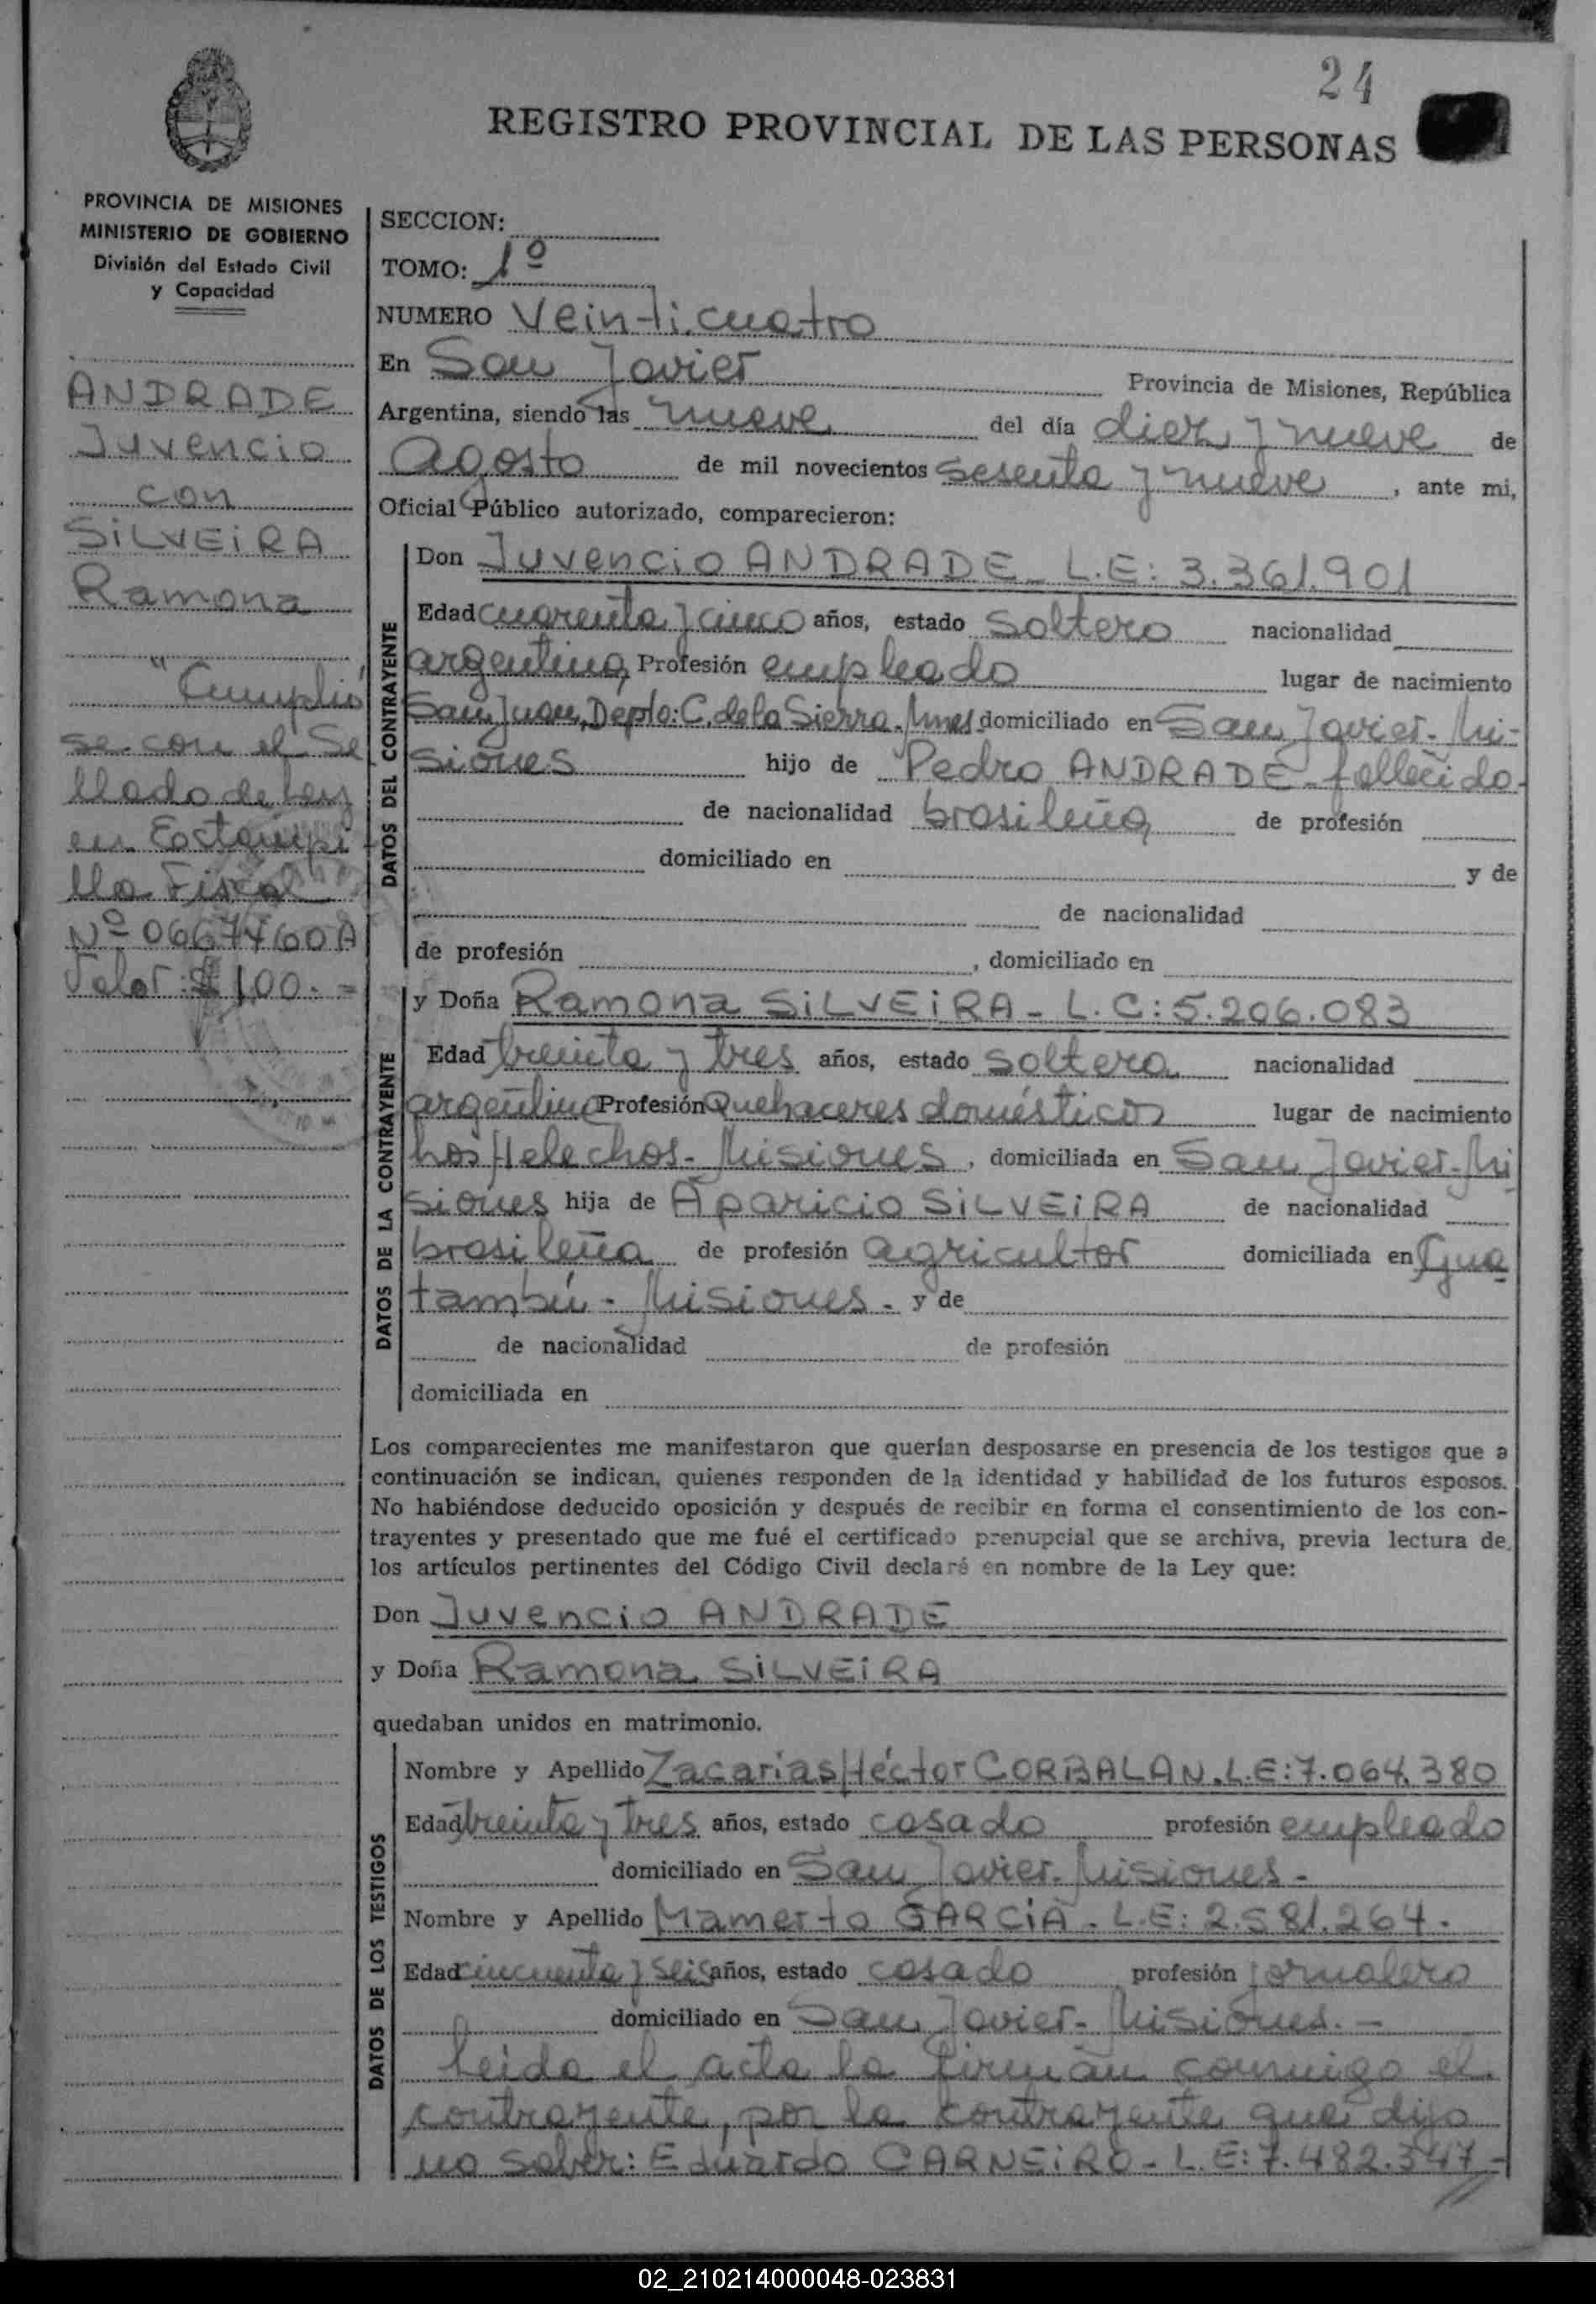 24
REGISTRO PROVINCIAL DE LAS PERSONAS
PROVINCIA DE MISIONES
MINISTERIO DE GOBIERNO
División del Estado Civil
y Capacidad
ANDRADE
Juvencio
con
SILVEIRA
Ramona
"Cumplió
se con el Se
llado de Ley
en Estampi
lla Fiscal
Nº 0667460A
Valor: $ 100.-
SECCION:
TOMO: 1º
NUMERO Veinticuatro
En San Javier Provincia de Misiones, República
Argentina, siendo las nueve del día diez y nueve de
Agosto de mil novecientos sesenta y nueve, ante mi,
Oficial Público autorizado, comparecieron:
DATOS DEL CONTRAYENTE
Don Juvencio ANDRADE - L.E: 3.361.901
Edad cuarenta y cinco años, estado soltero nacionalidad
argentina Profesión empleado lugar de nacimiento
San Juan, Depto: C. de la Sierra - Mnes domiciliado en San Javier - Mi-
siones hijo de Pedro ANDRADE - fallecido -
de nacionalidad brasileña de profesión
domiciliado en y de
de nacionalidad
de profesión , domiciliado en
DATOS DE LA CONTRAYENTE
y Doña Ramona SILVEIRA - L.C: 5.206.083
Edad treinta y tres años, estado soltera nacionalidad
argentina Profesión Quehaceres domésticos lugar de nacimiento
Los Helechos - Misiones, domiciliada en San Javier - Mi
siones hija de Aparicio SILVEIRA de nacionalidad
brasileña de profesión agricultor domiciliada en Gua
tambú - Misiones - y de
de nacionalidad de profesión
domiciliada en
Los comparecientes me manifestaron que querían desposarse en presencia de los testigos que a
continuación se indican, quienes responden de la identidad y habilidad de los futuros esposos.
No habiéndose deducido oposición y después de recibir en forma el consentimiento de los con-
trayentes y presentado que me fué el certificado prenupcial que se archiva, previa lectura de
los artículos pertinentes del Código Civil declaré en nombre de la Ley que:
Don Juvencio ANDRADE
y Doña Ramona SILVEIRA
quedaban unidos en matrimonio.
DATOS DE LOS TESTIGOS
Nombre y Apellido Zacarías Héctor CORBALAN. L.E: 7.064.380
Edad treinta y tres años, estado casado profesión empleado
domiciliado en San Javier - Misiones -
Nombre y Apellido Mamerto GARCIA - L.E: 2.581.264.
Edad cincuenta y seis años, estado casado profesión jornalero
domiciliado en San Javier - Misiones. -
Leída el acta la firman conmigo el
contrayente, por la contrayente que dijo
no saber: Eduardo CARNEIRO - L.E: 7.482.347 -
02_210214000048-023831